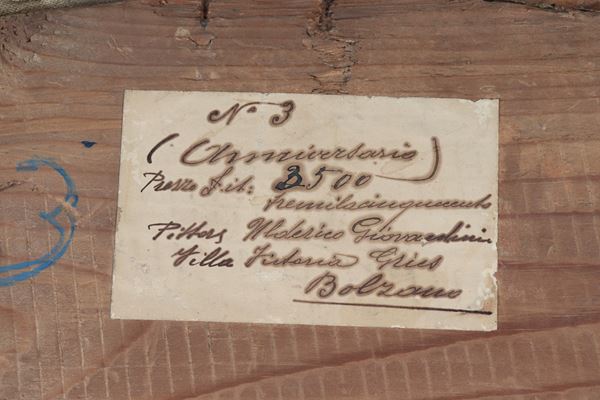 No 3
(Anniversario)
Prezzo £ it: 3500
tremilacinquecento
Pittore Ulderico Giovacchini
Villa Vittoria Gries
Bolzano